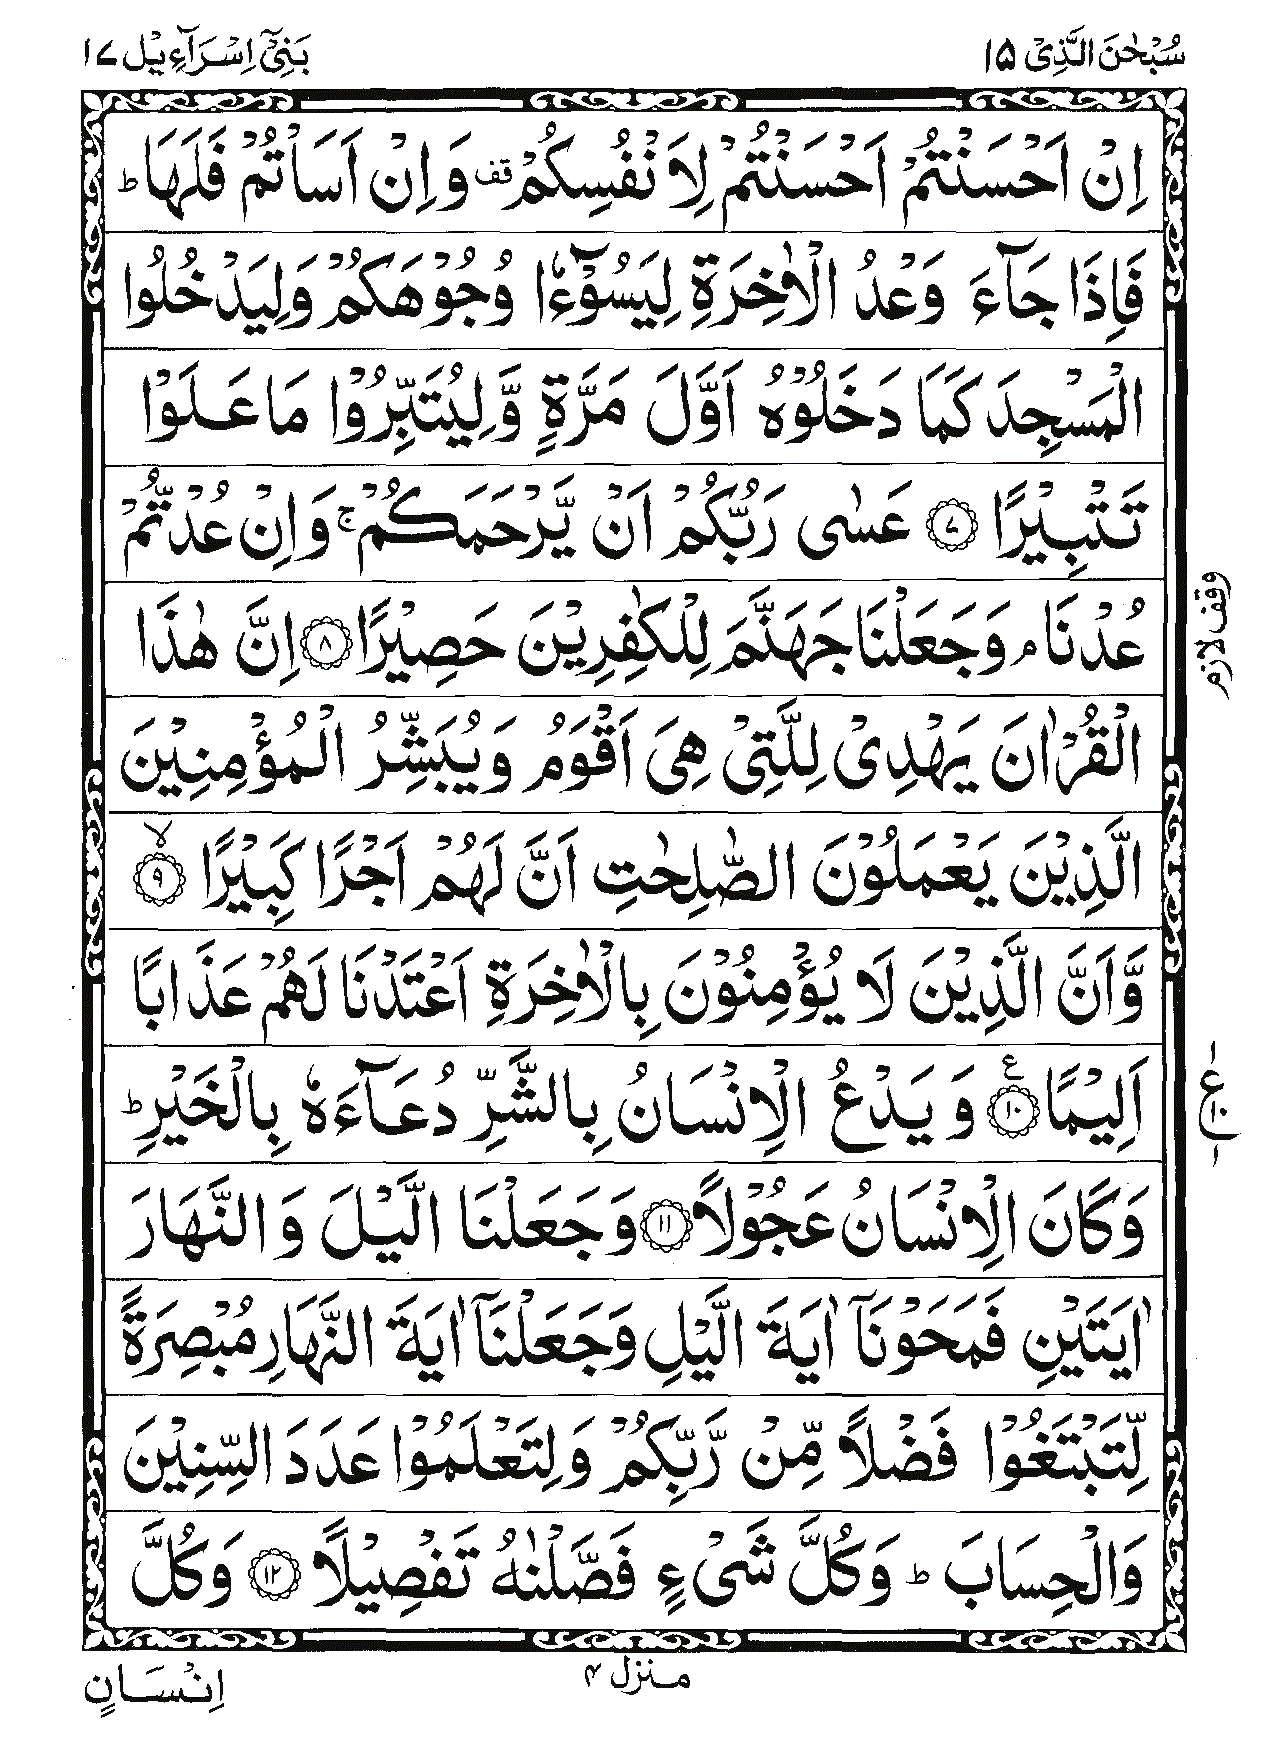 سُبْحٰنَ الَّذِیْ ١٥
بَنِیْٓ اِسْرَآءِیْل ١٧
اِنْ اَحْسَنْتُمْ اَحْسَنْتُمْ لِاَنْفُسِكُمْ قف وَاِنْ اَسَاْتُمْ فَلَهَا ط
فَاِذَا جَآءَ وَعْدُ الْاٰخِرَةِ لِیَسُوْٓءٗا وُجُوْهَكُمْ وَلِیَدْخُلُوا
الْمَسْجِدَ كَمَا دَخَلُوْهُ اَوَّلَ مَرَّةٍ وَّلِیُتَبِّرُوْا مَا عَلَوْا
تَتْبِیْرًا ٧ عَسٰی رَبُّكُمْ اَنْ یَّرْحَمَكُمْ ج وَاِنْ عُدْتُّمْ
عُدْنَا م وَجَعَلْنَا جَهَنَّمَ لِلْكٰفِرِیْنَ حَصِیْرًا ٨ اِنَّ هٰذَا
وقف لازم
الْقُرْاٰنَ یَهْدِیْ لِلَّتِیْ هِیَ اَقْوَمُ وَیُبَشِّرُ الْمُؤْمِنِیْنَ
الَّذِیْنَ یَعْمَلُوْنَ الصّٰلِحٰتِ اَنَّ لَهُمْ اَجْرًا كَبِیْرًا ٩ لا
وَّاَنَّ الَّذِیْنَ لَا یُؤْمِنُوْنَ بِالْاٰخِرَةِ اَعْتَدْنَا لَهُمْ عَذَابًا
اَلِیْمًا ١٠ ع وَیَدْعُ الْاِنْسَانُ بِالشَّرِّ دُعَآءَهٗ بِالْخَیْرِ ط
ع ١ ١٠ ١
وَكَانَ الْاِنْسَانُ عَجُوْلًا ١١ وَجَعَلْنَا الَّیْلَ وَالنَّهَارَ
اٰیَتَیْنِ فَمَحَوْنَآ اٰیَةَ الَّیْلِ وَجَعَلْنَآ اٰیَةَ النَّهَارِ مُبْصِرَةً
لِّتَبْتَغُوْا فَضْلًا مِّنْ رَّبِّكُمْ وَلِتَعْلَمُوْا عَدَدَ السِّنِیْنَ
وَالْحِسَابَ ط وَكُلَّ شَیْءٍ فَصَّلْنٰهُ تَفْصِیْلًا ١٢ وَكُلَّ
منزل ۴
اِنْسَانٍ